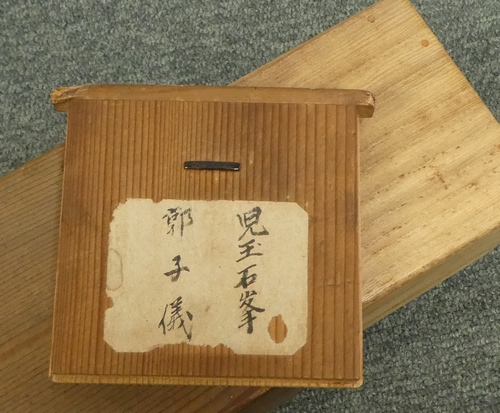 児玉石峯
郭子儀